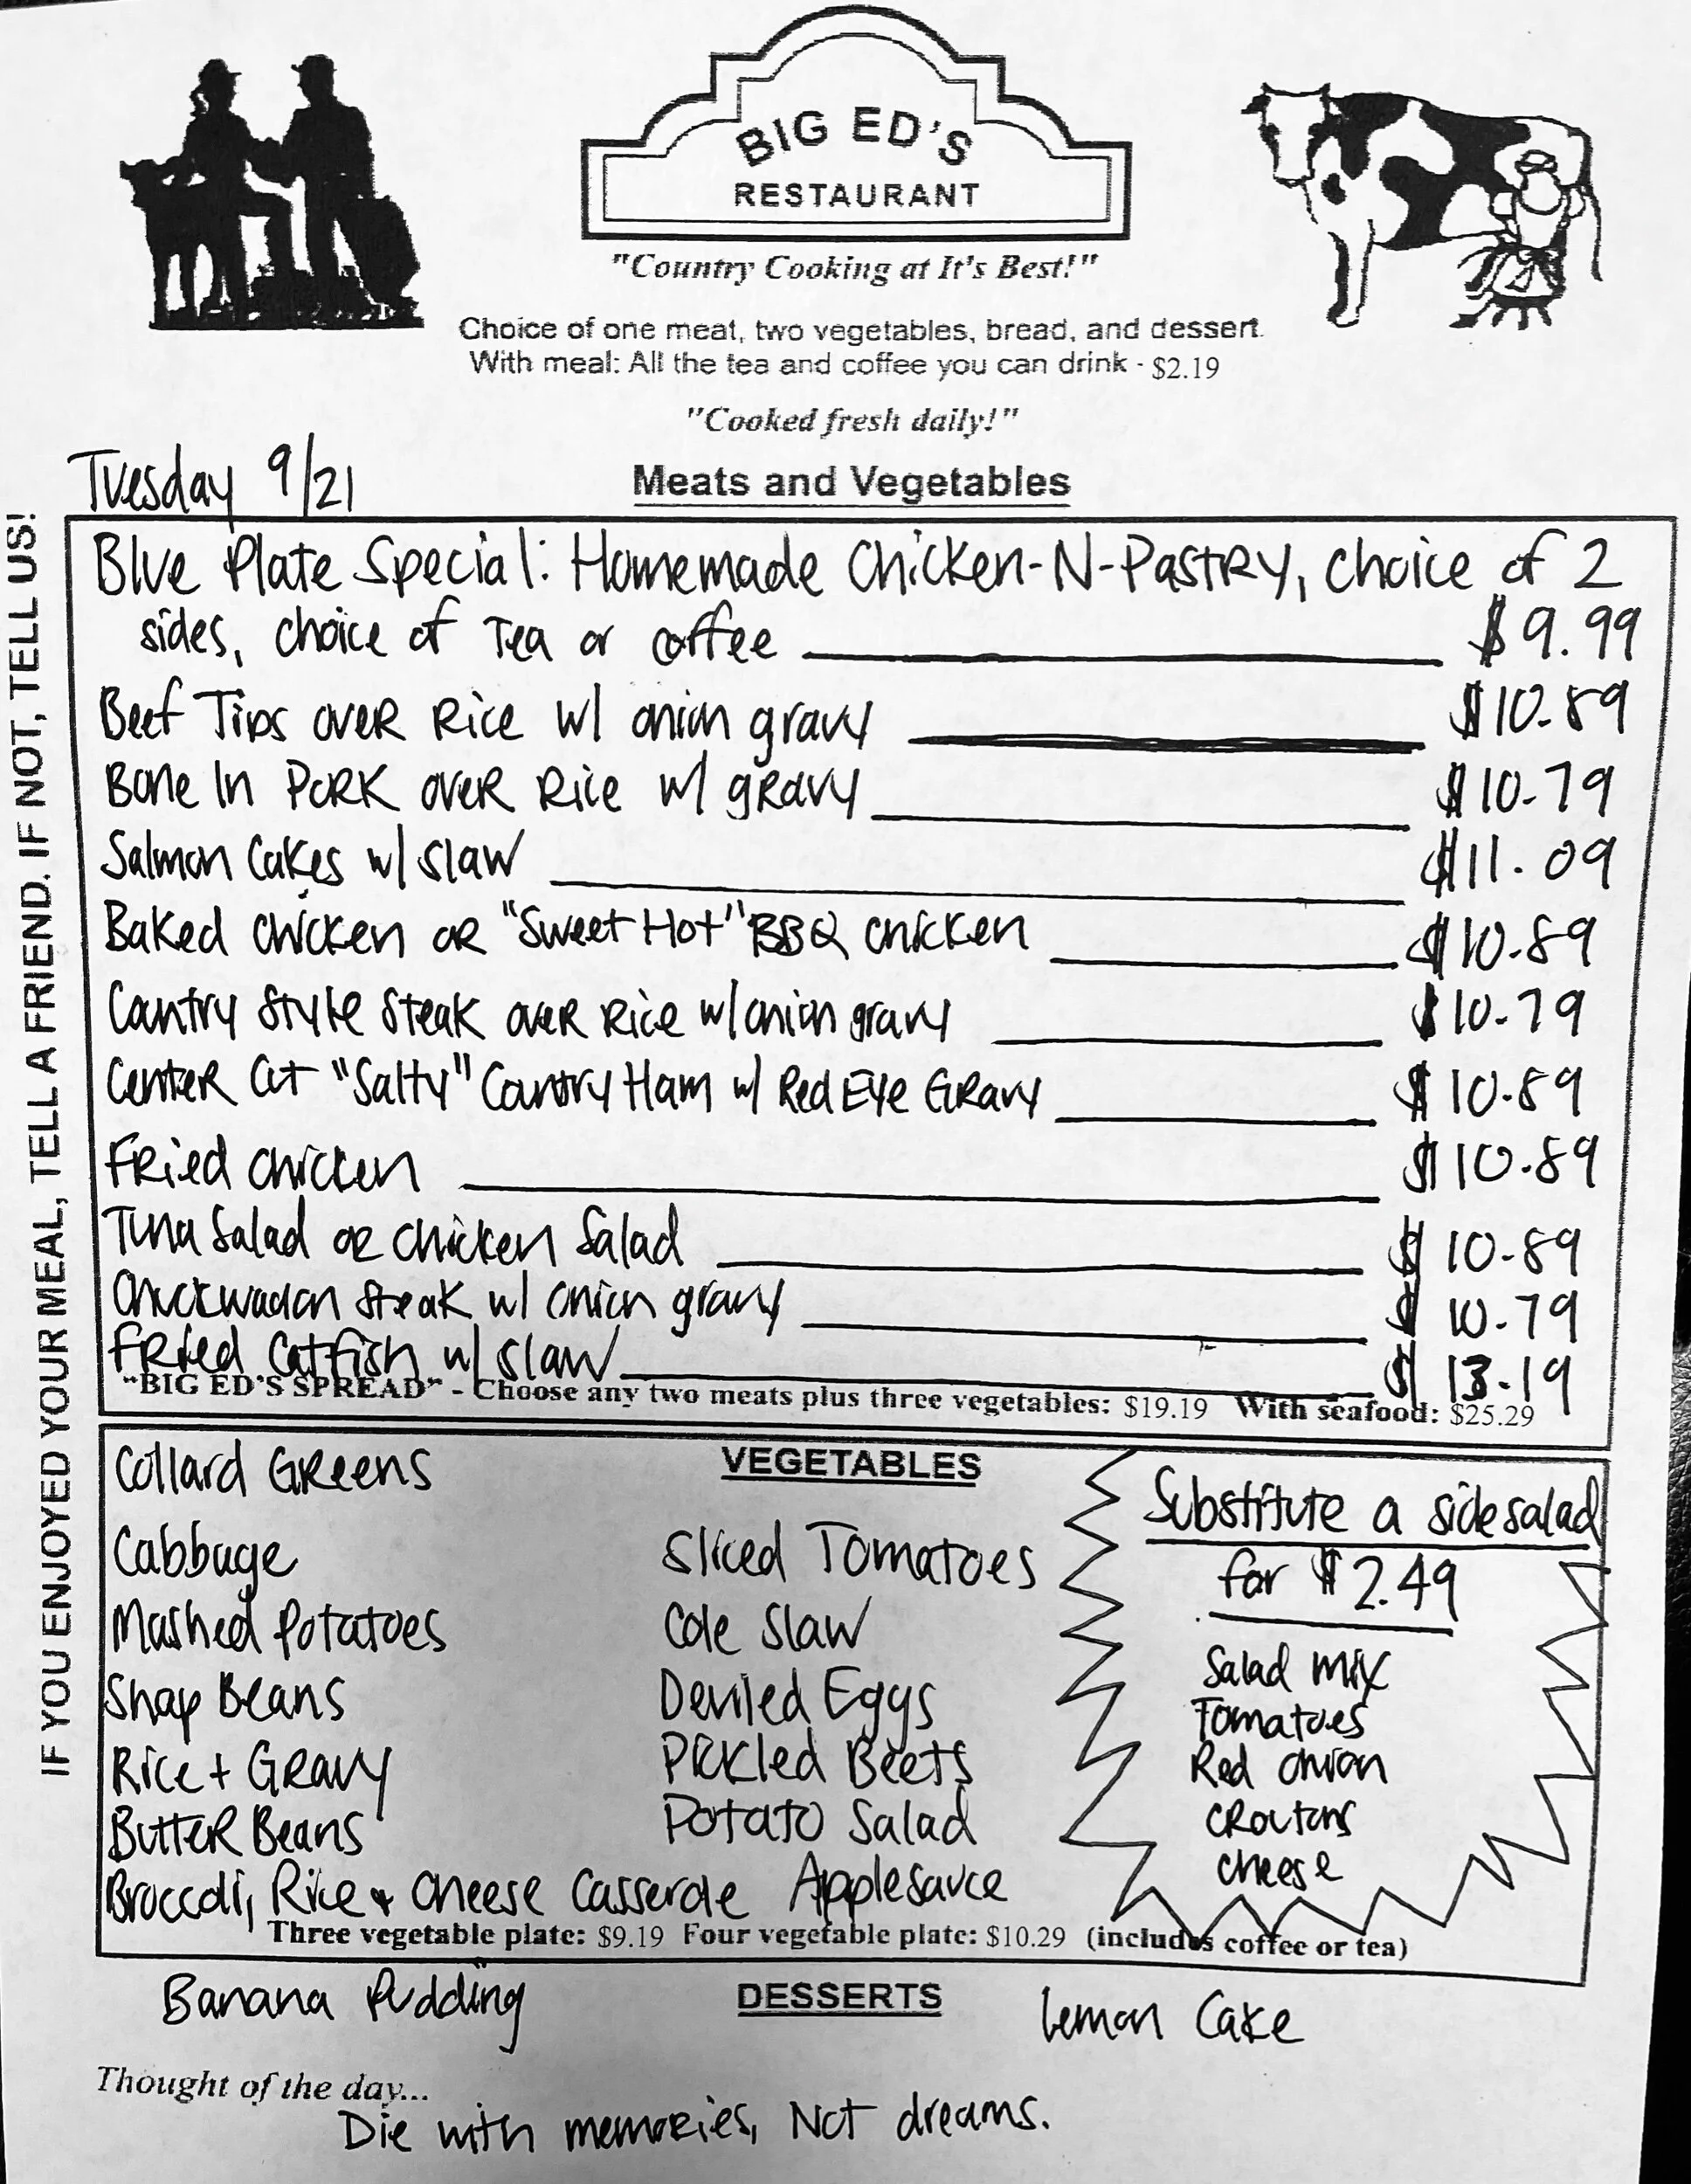 BIG ED'S
RESTAURANT
"Country Cooking at It's Best!"
Choice of one meat, two vegetables, bread, and dessert.
With meal: All the tea and coffee you can drink - $2.19
"Cooked fresh daily!"
Tuesday 9/21
Meats and Vegetables
IF YOU ENJOYED YOUR MEAL, TELL A FRIEND. IF NOT, TELL US!
Blue Plate Special: Homemade Chicken-N-Pastry, choice of 2
sides, choice of Tea or coffee $9.99
Beef Tips over Rice w/ onion gravy $10.89
Bone In Pork over Rice w/ gravy $10.79
Salmon Cakes w/ slaw $11.09
Baked chicken or "Sweet Hot" BBQ chicken $10.89
Country Style Steak over Rice w/ onion gravy $10.79
Center Cut "Salty" Country Ham w/ Red Eye Gravy $10.89
Fried chicken $10.89
Tuna Salad or chicken Salad $10.89
Chuckwagon steak w/ onion gravy $10.79
Fried Catfish w/ slaw $13.19
"BIG ED'S SPREAD" - Choose any two meats plus three vegetables: $19.19 With seafood: $25.29
VEGETABLES
Collard Greens
Cabbage
Mashed Potatoes
Snap Beans
Rice + Gravy
Butter Beans
Broccoli, Rice + Cheese Casserole
Sliced Tomatoes
Cole Slaw
Deviled Eggs
Pickled Beets
Potato Salad
Applesauce
Substitute a side salad
for $2.49
Salad mix
Tomatoes
Red onion
Croutons
Cheese
Three vegetable plate: $9.19 Four vegetable plate: $10.29 (includes coffee or tea)
DESSERTS
Banana Pudding
Lemon Cake
Thought of the day...
Die with memories, Not dreams.